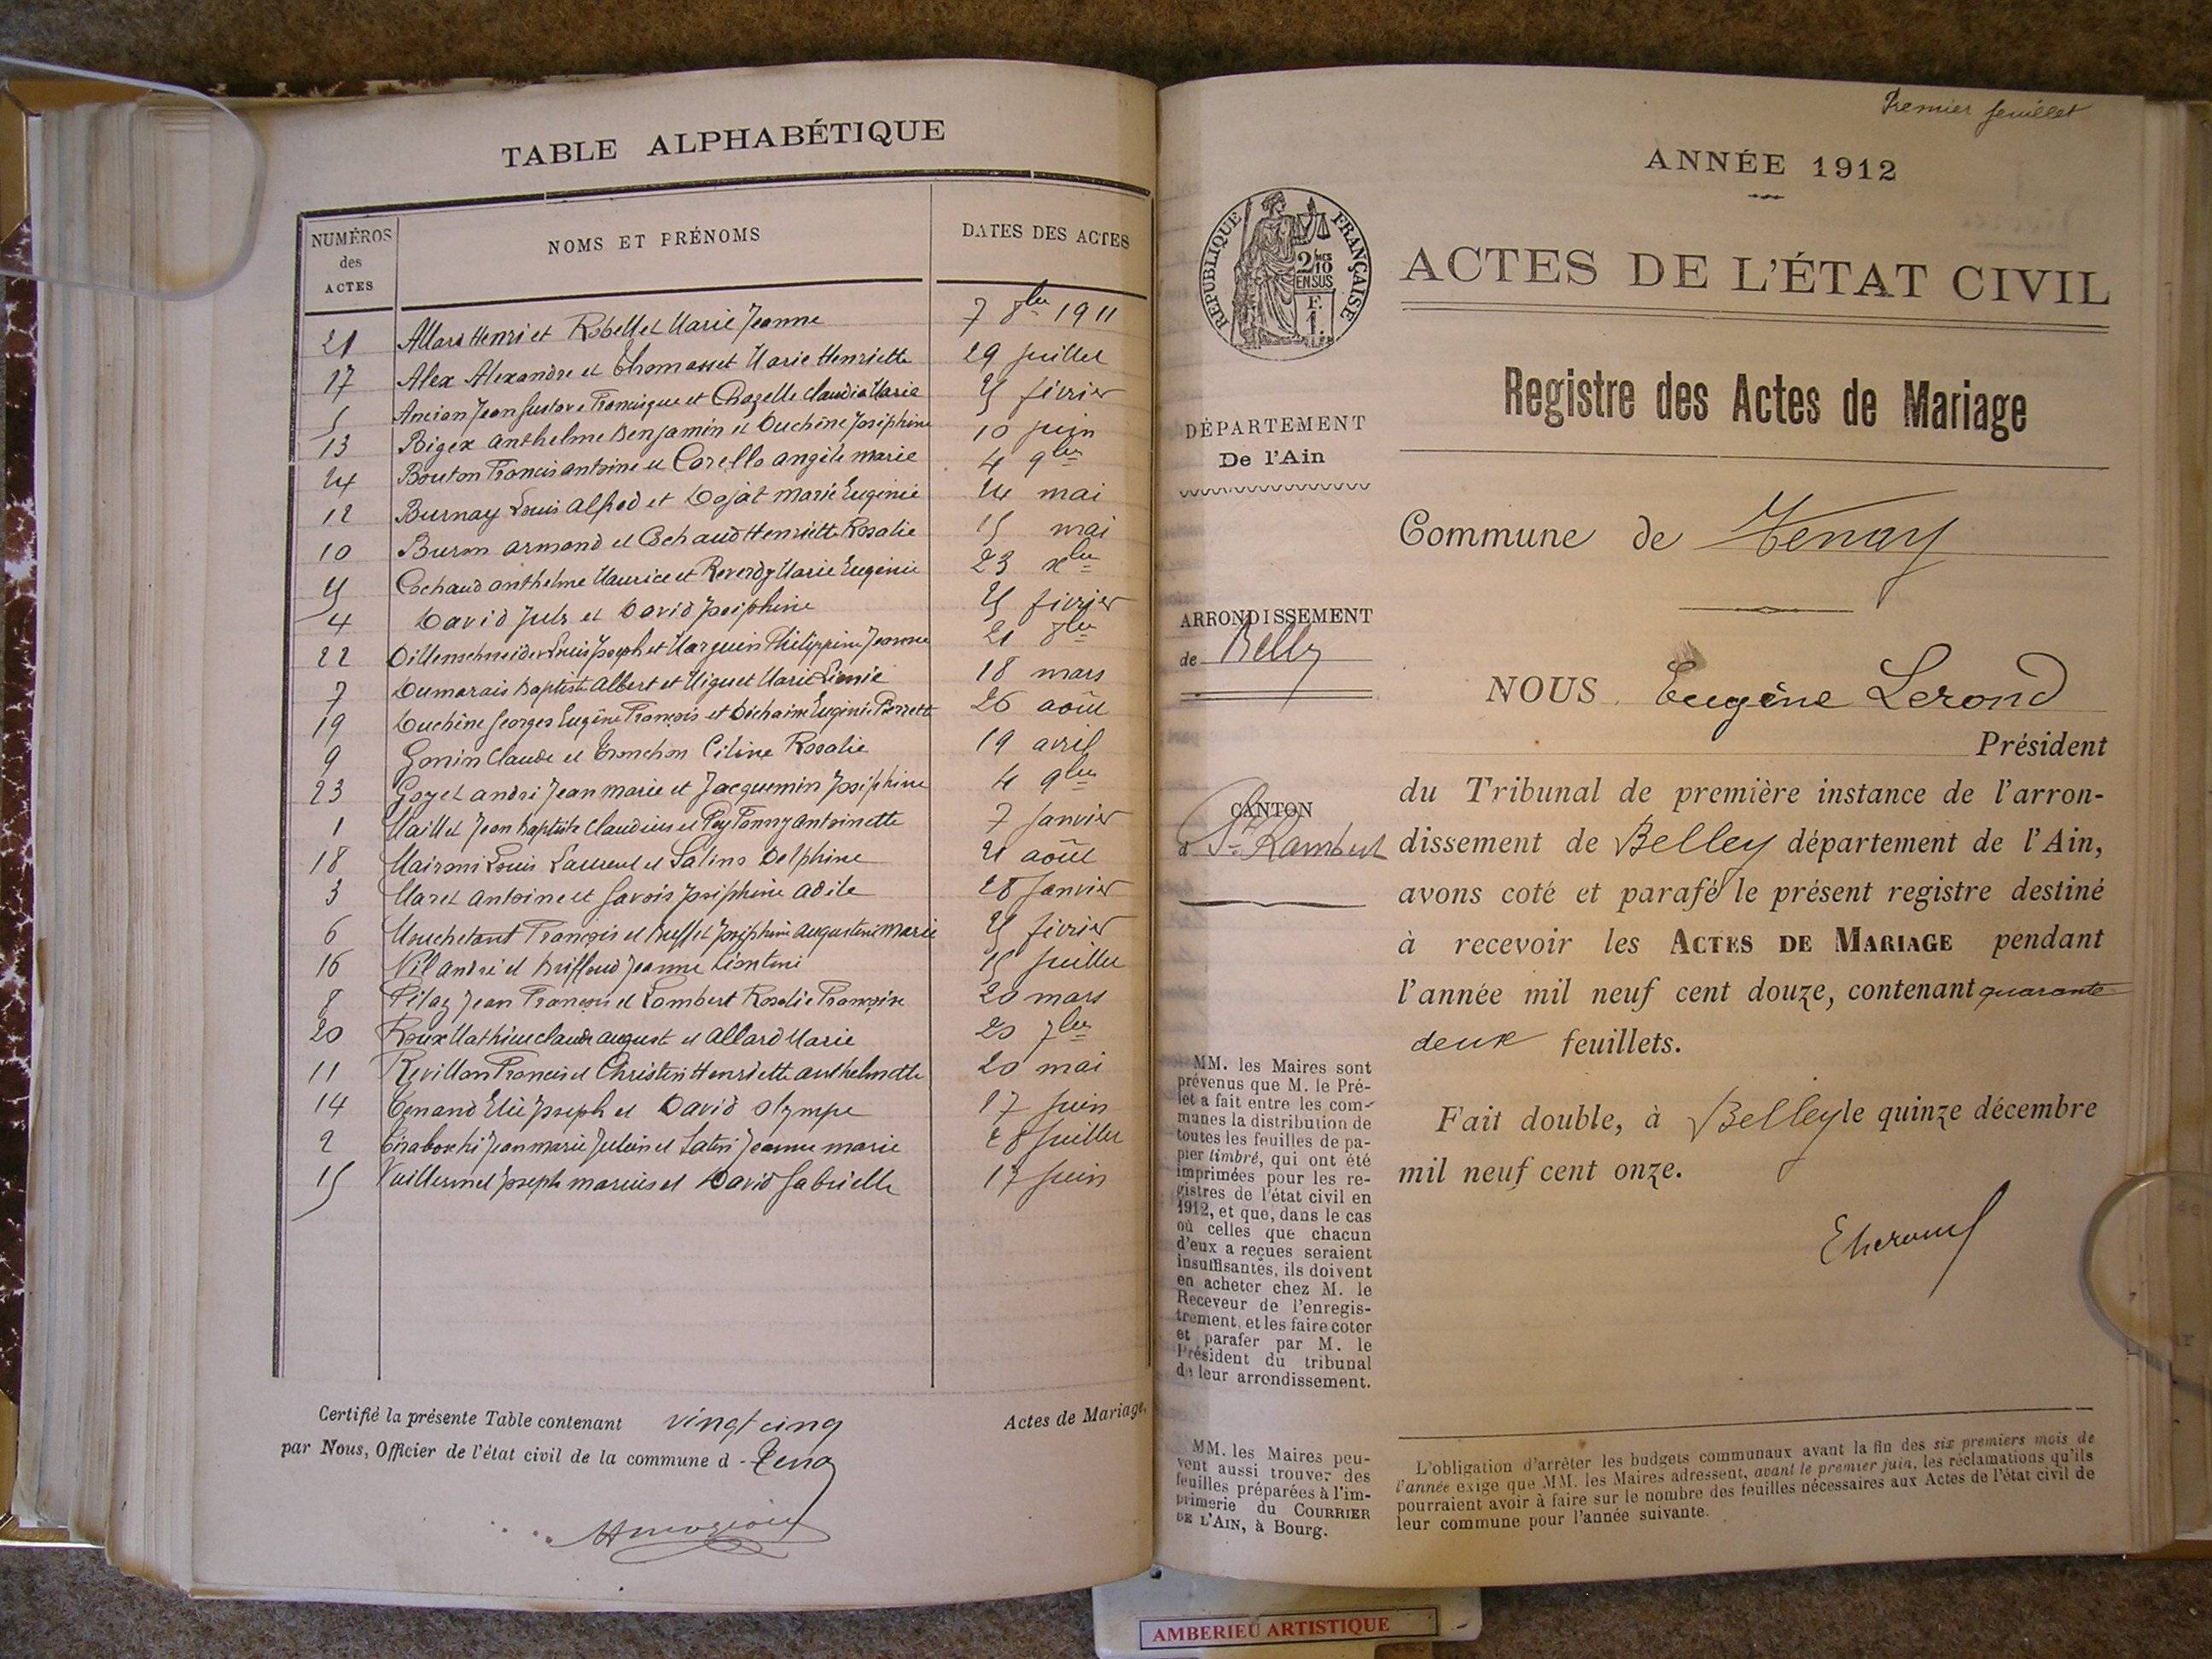 TABLE ALPHABÉTIQUE
NUMÉROS des ACTES
NOMS ET PRÉNOMS
DATES DES ACTES
21 Allard Henri et Robellet Marie Jeanne 7 8bre 1911
17 Alex Alexandre et Thomasset Marie Henriette 29 juillet
5 Ancian Jean Gustave Francisque et Chazelle Claudia Marie 25 février
13 Bigex Anthelme Benjamin et Duchêne Joséphine 10 juin
24 Bouton Francis Antoine et Corello Angèle Marie 4 9bre
12 Burnay Louis Alfred et Dojat Marie Eugénie 24 mai
10 Buron Armand et Cochaud Henriette Rosalie 15 mai
25 Cochaud Anthelme Maurice et Reverdy Marie Eugénie 23 xbre
4 David Jules et David Joséphine 25 février
22 Dillenschneider Louis Joseph et Marguin Philippine Jeanne 21 8bre
7 Dumarais Baptiste Albert et Miguet Marie Léonie 18 mars
19 Duchêne Georges Eugène François et Dechaine Eugénie Pierrette 26 août
9 Gonin Claude et Tronchon Céline Rosalie 19 avril
23 Goyet André Jean Marie et Jacquemin Joséphine 4 9bre
1 Maillet Jean Baptiste Claudius et Pey Fanny Antoinette 7 janvier
18 Maironi Louis Laurent et Salino Delphine 21 août
3 Maret Antoine et Savois Joséphine Adèle 28 janvier
6 Mouchetant François et Buffet Joséphine Augustine Marie 25 février
16 Nil André et Briffoud Jeanne Léontine 15 juillet
8 Pilaz Jean François et Lambert Rosalie Françoise 20 mars
20 Roux Mathieu Claude August et Allard Marie 20 7bre
11 Revillon Francis et Christin Henriette Anthelmette 20 mai
14 Tenand Elie Joseph et David Olympe 17 juin
2 Tiraboschi Jean Marie Julien et Jeanne Marie 28 juillet
15 Vuillermet Joseph Marius et David Gabrielle 17 juin
Certifié la présente Table contenant vingt cinq Actes de Mariage,
par Nous, Officier de l'état civil de la commune d - Tenay
Premier feuillet
ANNÉE 1912
RÉPUBLIQUE FRANÇAISE
2/10 EN SUS
F. 1.
ACTES DE L'ÉTAT CIVIL
Registre des Actes de Mariage
DÉPARTEMENT
De l'Ain
Commune de Tenay
ARRONDISSEMENT
de Belley
NOUS Eugène Lerond
Président
CANTON
d St Rambert
du Tribunal de première instance de l'arron-
dissement de Belley département de l'Ain,
avons coté et parafé le présent registre destiné
à recevoir les ACTES DE MARIAGE pendant
l'année mil neuf cent douze, contenant quarante
deux feuillets.
Fait double, à Belley le quinze décembre
mil neuf cent onze.
ELerond
MM. les Maires sont
prévenus que M. le Pré-
fet a fait entre les com-
munes la distribution de
toutes les feuilles de pa-
pier timbré, qui ont été
imprimées pour les re-
gistres de l'état civil en
1912, et que, dans le cas
où celles que chacun
d'eux a reçues seraient
insuffisantes, ils doivent
en acheter chez M. le
Receveur de l'enregis-
trement, et les faire coter
et parafer par M. le
Président du tribunal
de leur arrondissement.
MM. les Maires peu-
vent aussi trouver des
feuilles préparées à l'im-
primerie du COURRIER
DE L'AIN, à Bourg.
L'obligation d'arrêter les budgets communaux avant la fin des six premiers mois de
l'année exige que MM. les Maires adressent, avant le premier juin, les réclamations qu'ils
pourraient avoir à faire sur le nombre des feuilles nécessaires aux Actes de l'état civil de
leur commune pour l'année suivante.
AMBERIEU ARTISTIQUE